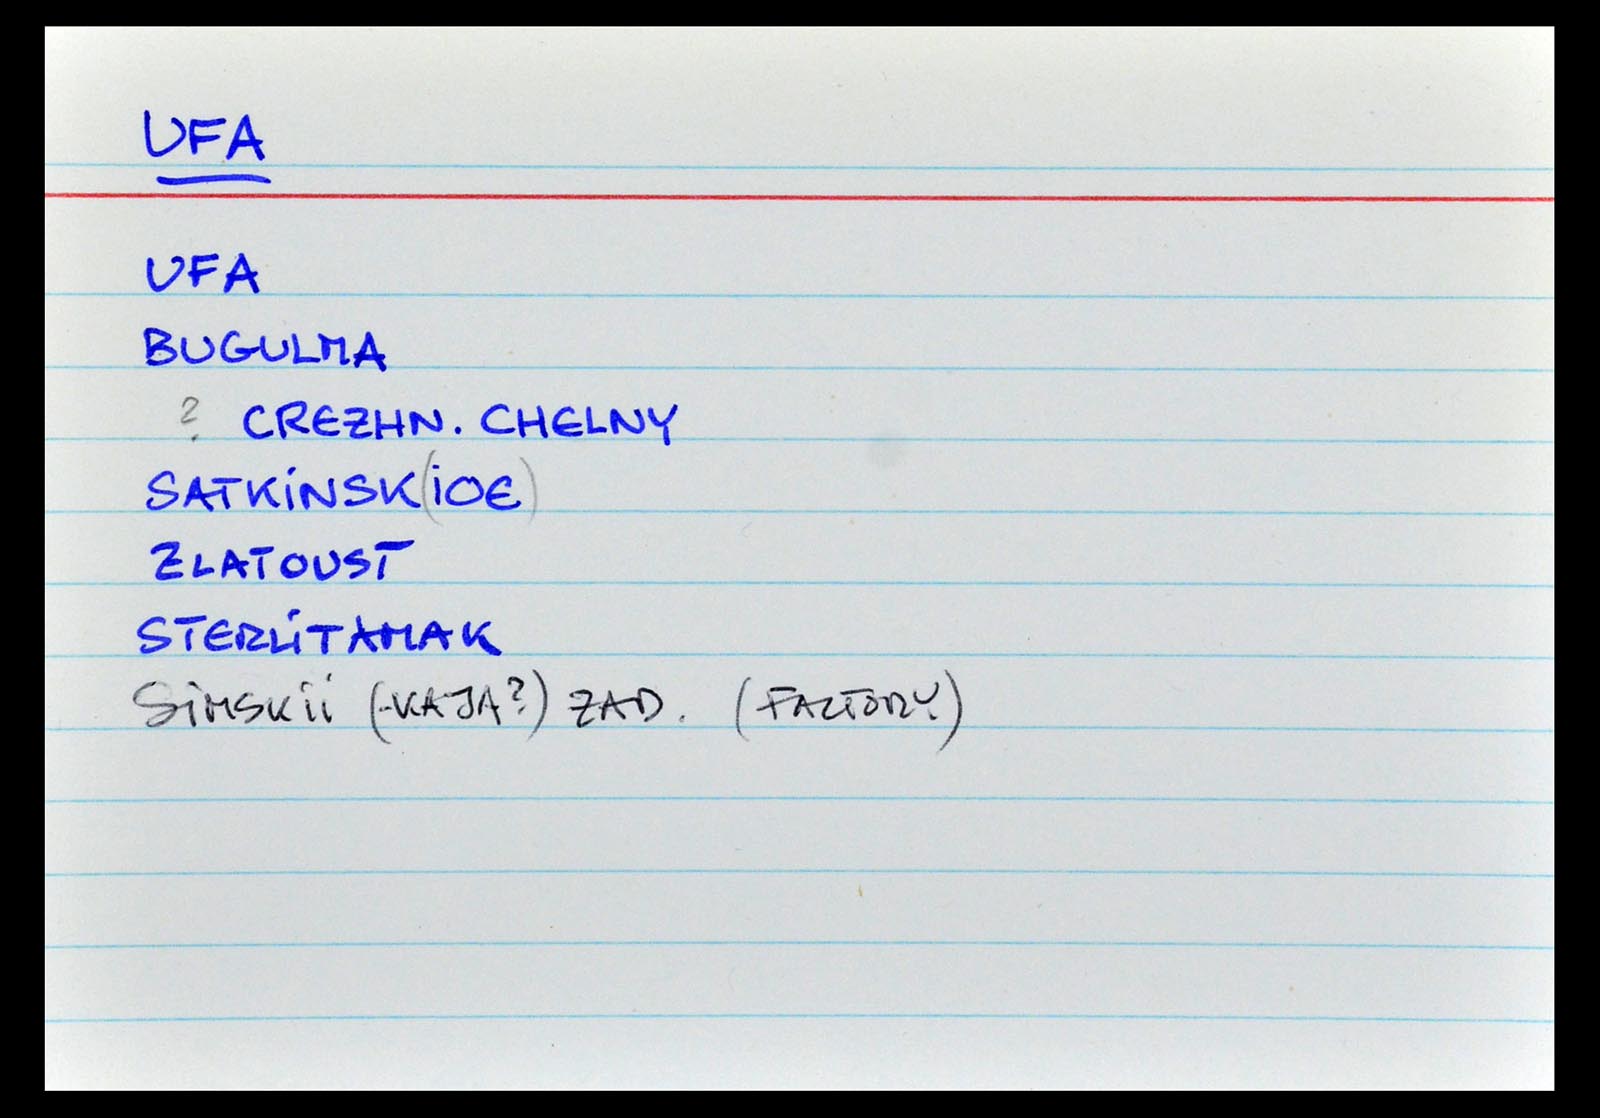 UFA
UFA
BUGULMA
? CREZHN. CHELNY
SATKINSK(IOE)
ZLATOUST
STERLITAMAK
SIMSKII (-KAJA?) ZAD. (FACTORY)